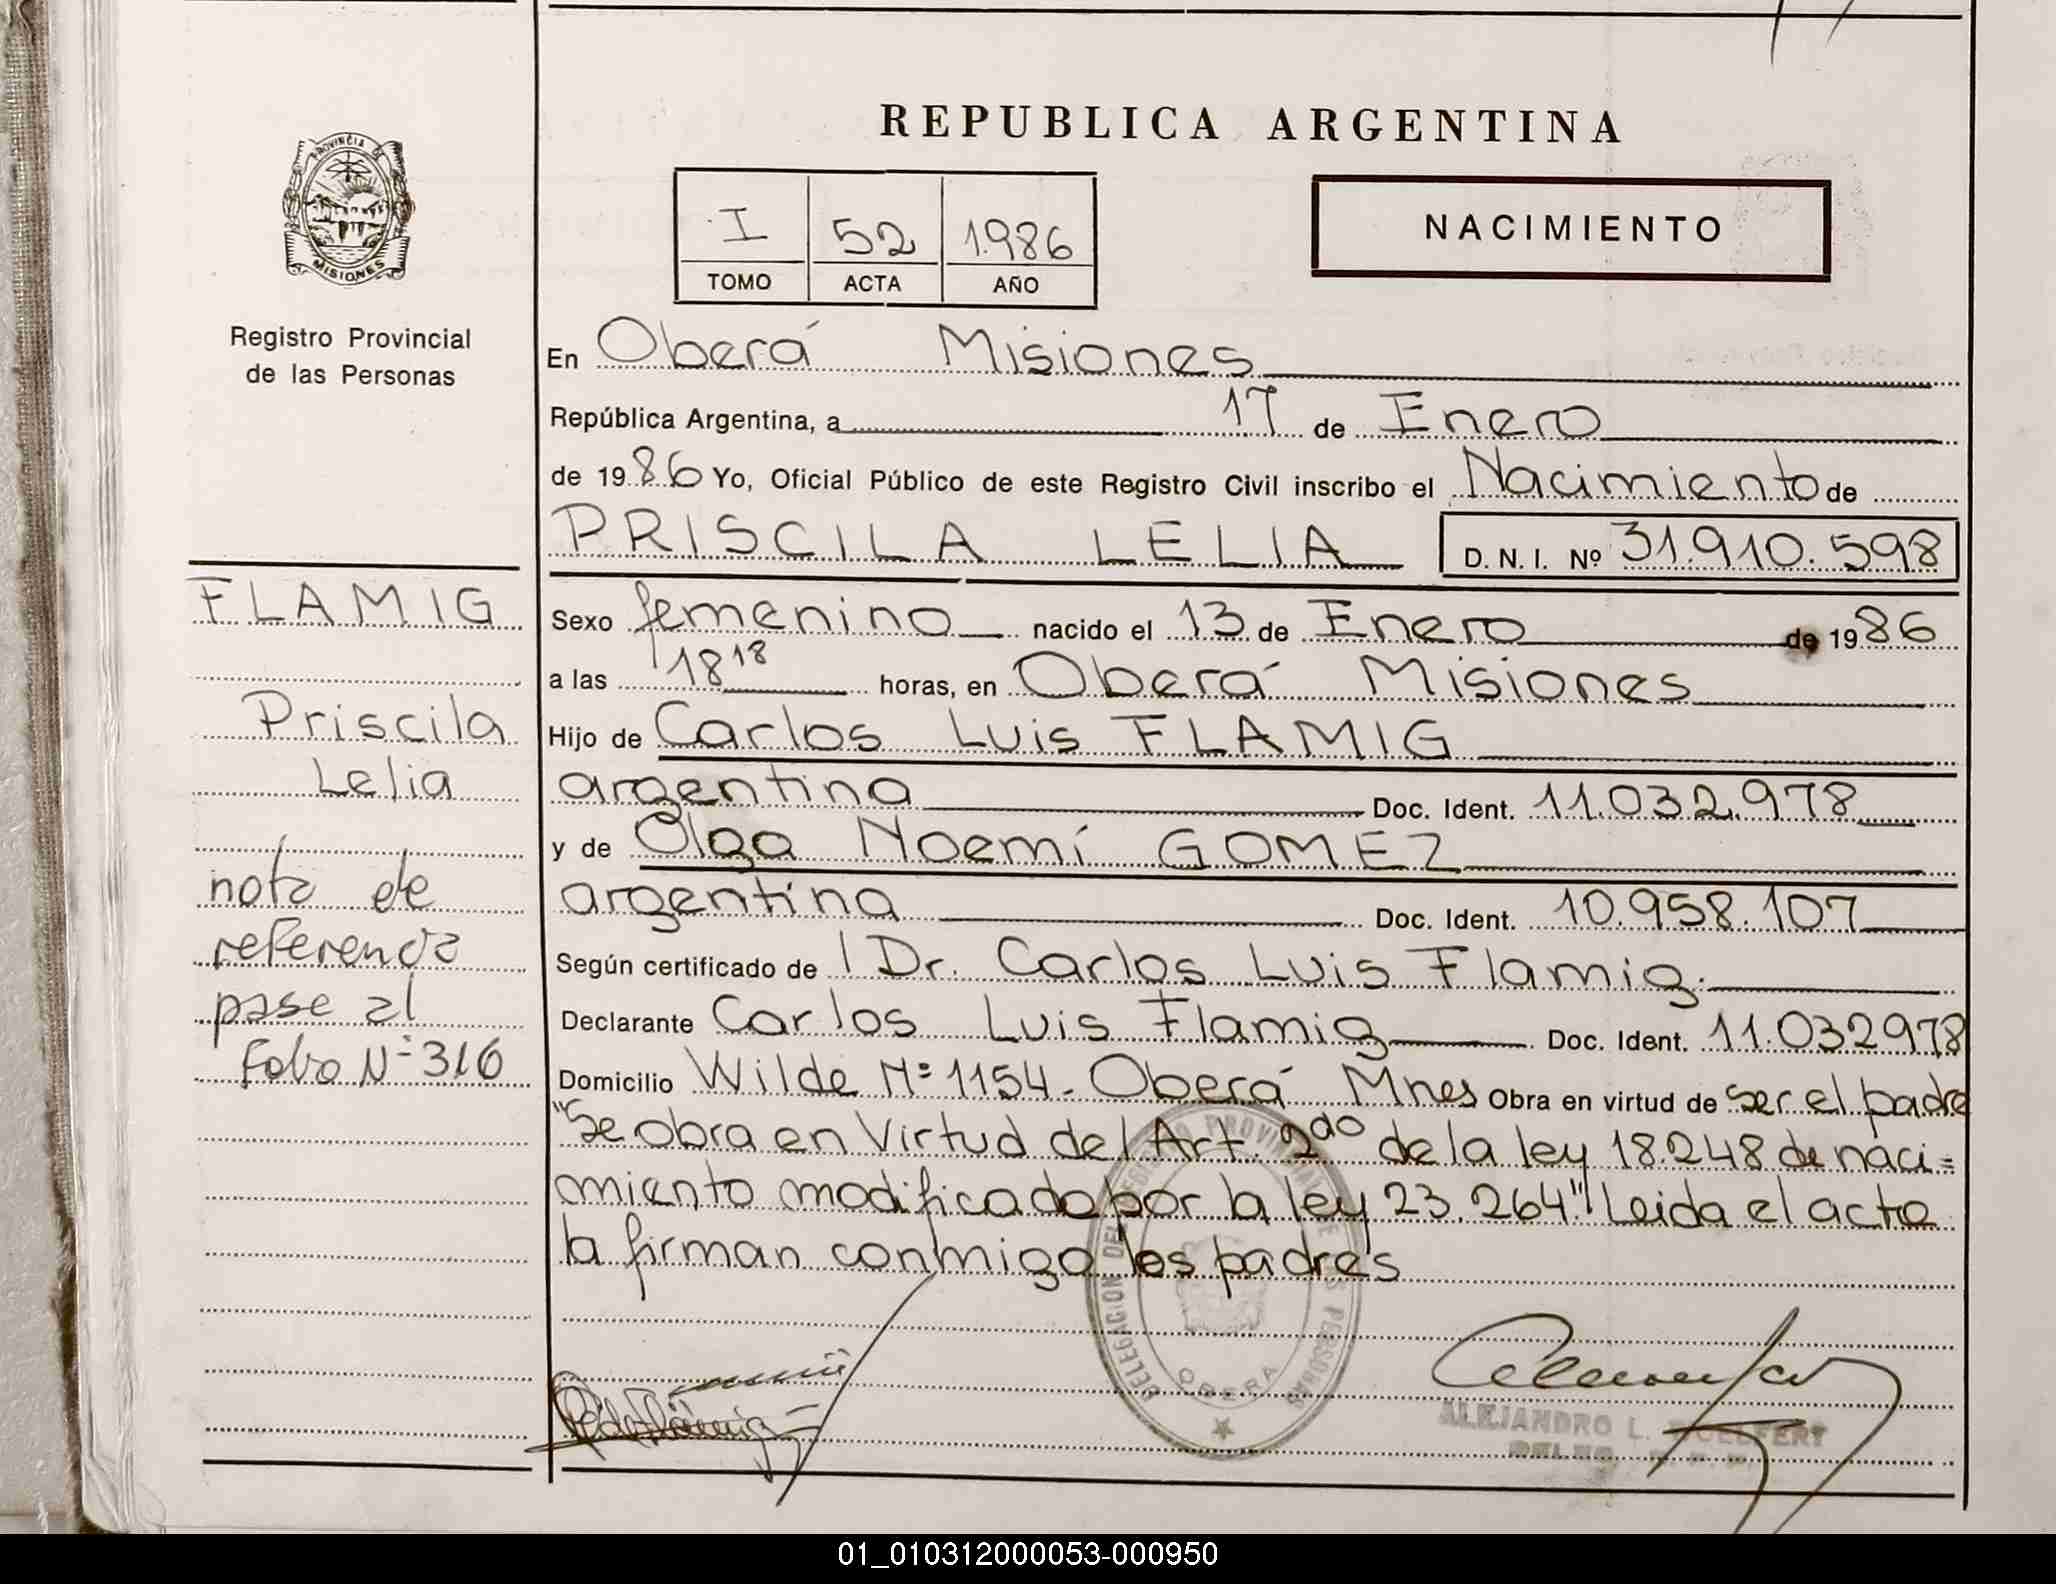 REPUBLICA ARGENTINA
PROVINCIA DE
MISIONES
I 52 1.986
TOMO ACTA AÑO
NACIMIENTO
Registro Provincial
de las Personas
En Oberá Misiones
República Argentina, a 17 de Enero
de 1986 Yo, Oficial Público de este Registro Civil inscribo el Nacimiento de
PRISCILA LELIA D. N. I. Nº 31.910.598
FLAMIG
Priscila
Lelia
nota de
referencia
pase al
Folio Nº 316
Sexo femenino nacido el 13 de Enero de 1986
a las 18 18 horas, en Oberá Misiones
Hijo de Carlos Luis FLAMIG
argentina Doc. Ident. 11.032.978
y de Olga Noemí GOMEZ
argentina Doc. Ident. 10.958.107
Según certificado de Dr. Carlos Luis Flamig.
Declarante Carlos Luis Flamig Doc. Ident. 11.032978
Domicilio Wilde Nº 1154 - Oberá Mnes Obra en virtud de ser el padre
"Se obra en Virtud del Art. 2do de la ley 18.248 de naci=
miento modificado por la ley 23.264" Leida el acta
la firman conmigo los padres
DELEGACION DEL REGISTRO PROVINCIAL DE LAS PERSONAS
OBERA
ALEJANDRO L.
01_010312000053-000950